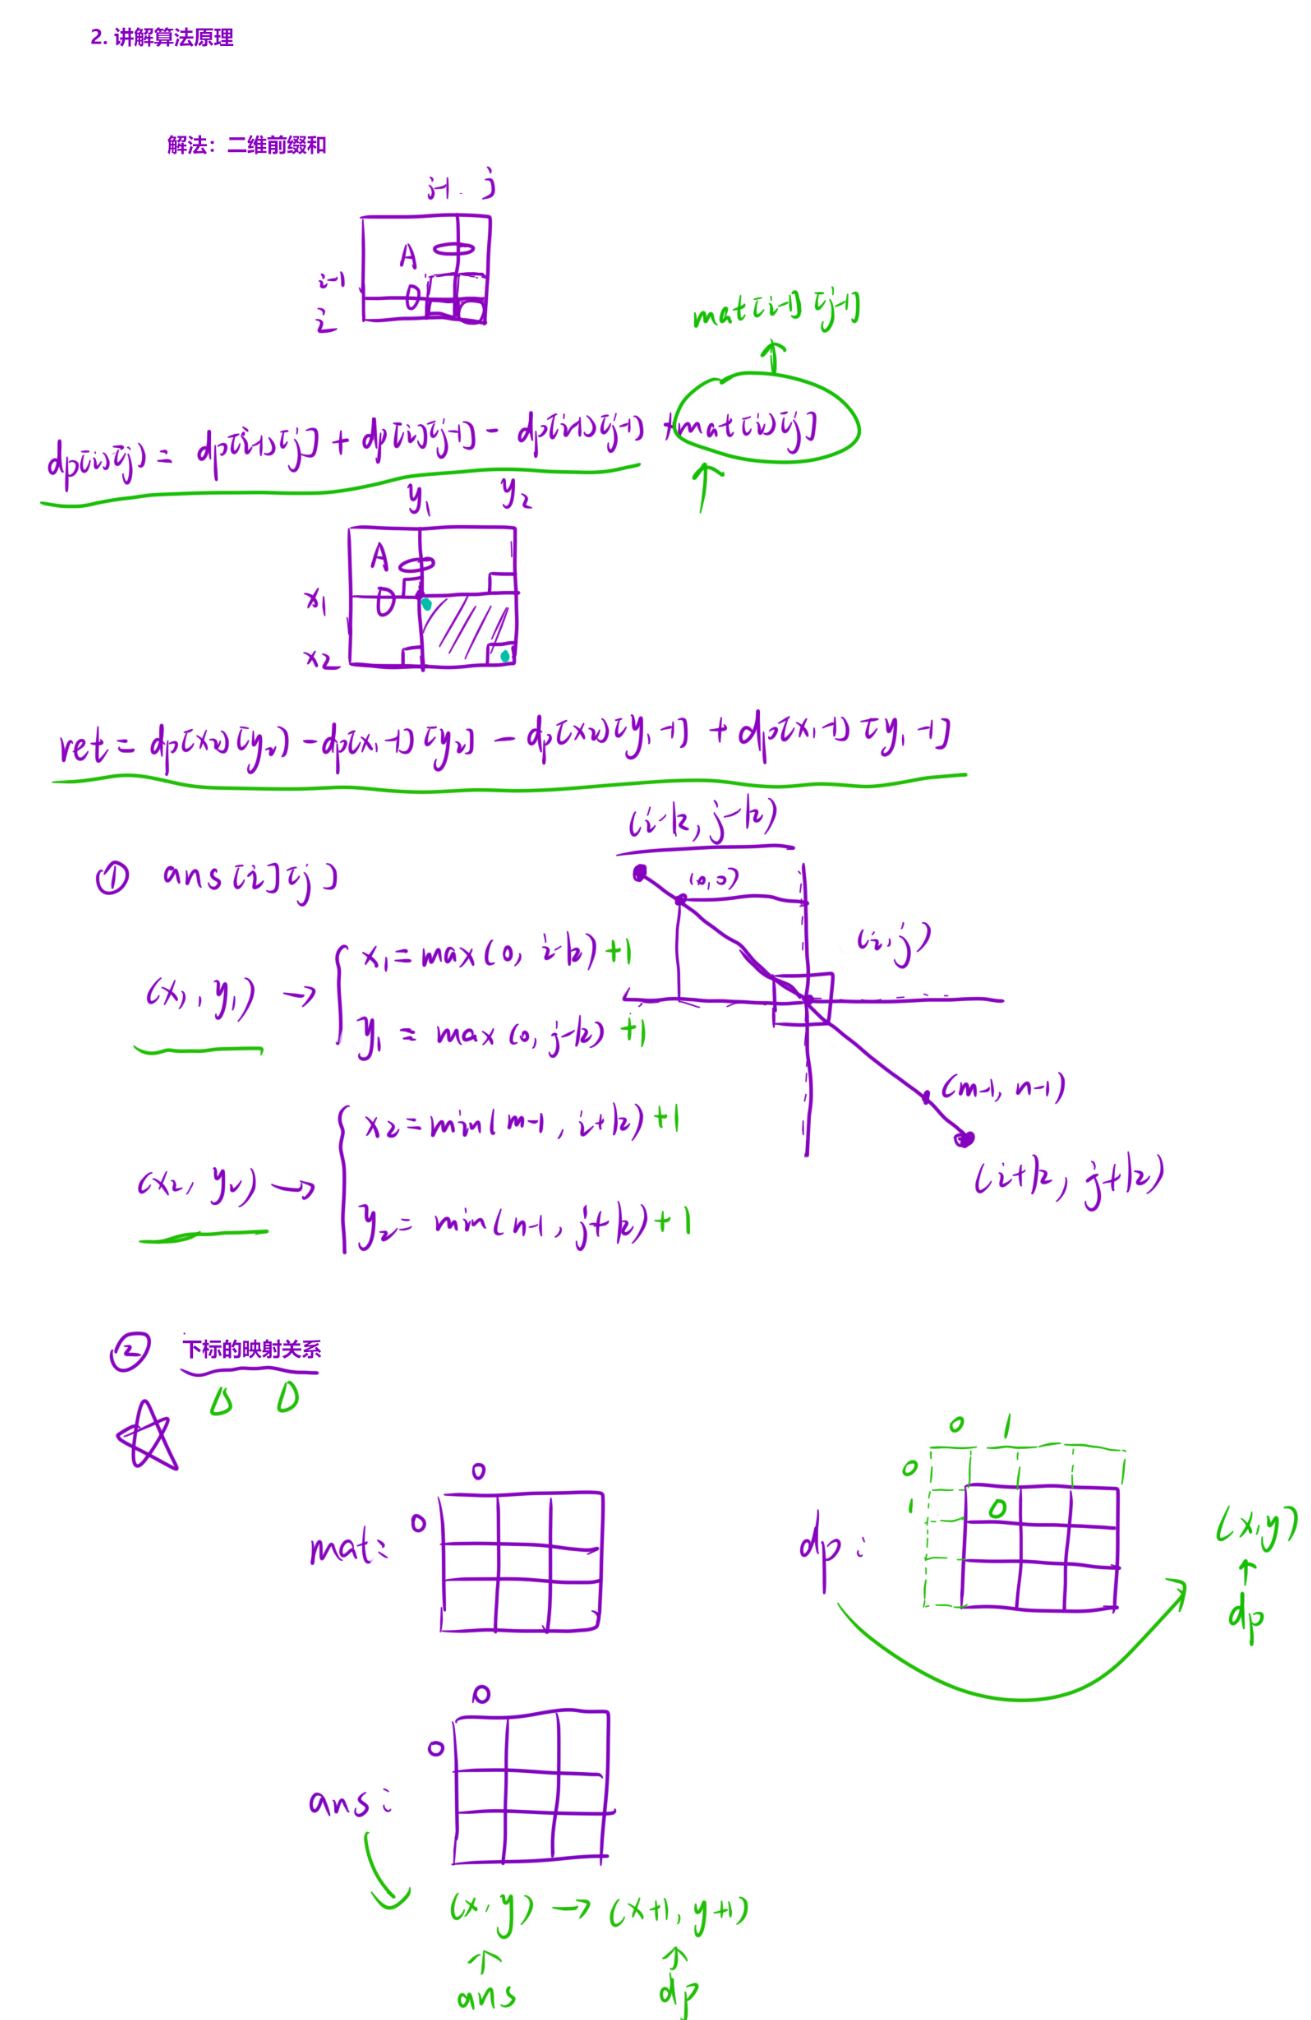 2. 讲解算法原理
解法：二维前缀和
j-1 j
A
i-1
i
mat[i-1][j-1]
dp[i][j] = dp[i-1][j] + dp[i][j-1] - dp[i-1][j-1] + mat[i][j]
y1 y2
A
x1
x2
ret = dp[x2][y2] - dp[x1-1][y2] - dp[x2][y1-1] + dp[x1-1][y1-1]
(i-k, j-k)
① ans[i][j]
(0,0)
(i,j)
x1 = max(0, i-k) +1
(x1, y1) →
y1 = max(0, j-k) +1
(m-1, n-1)
x2 = min(m-1, i+k) +1
(i+k, j+k)
(x2, y2) →
y2 = min(n-1, j+k) +1
② 下标的映射关系
0 1
0
0
1 0
0
mat:
dp:
(x,y)
dp
0
0
ans:
(x,y) → (x+1, y+1)
ans dp